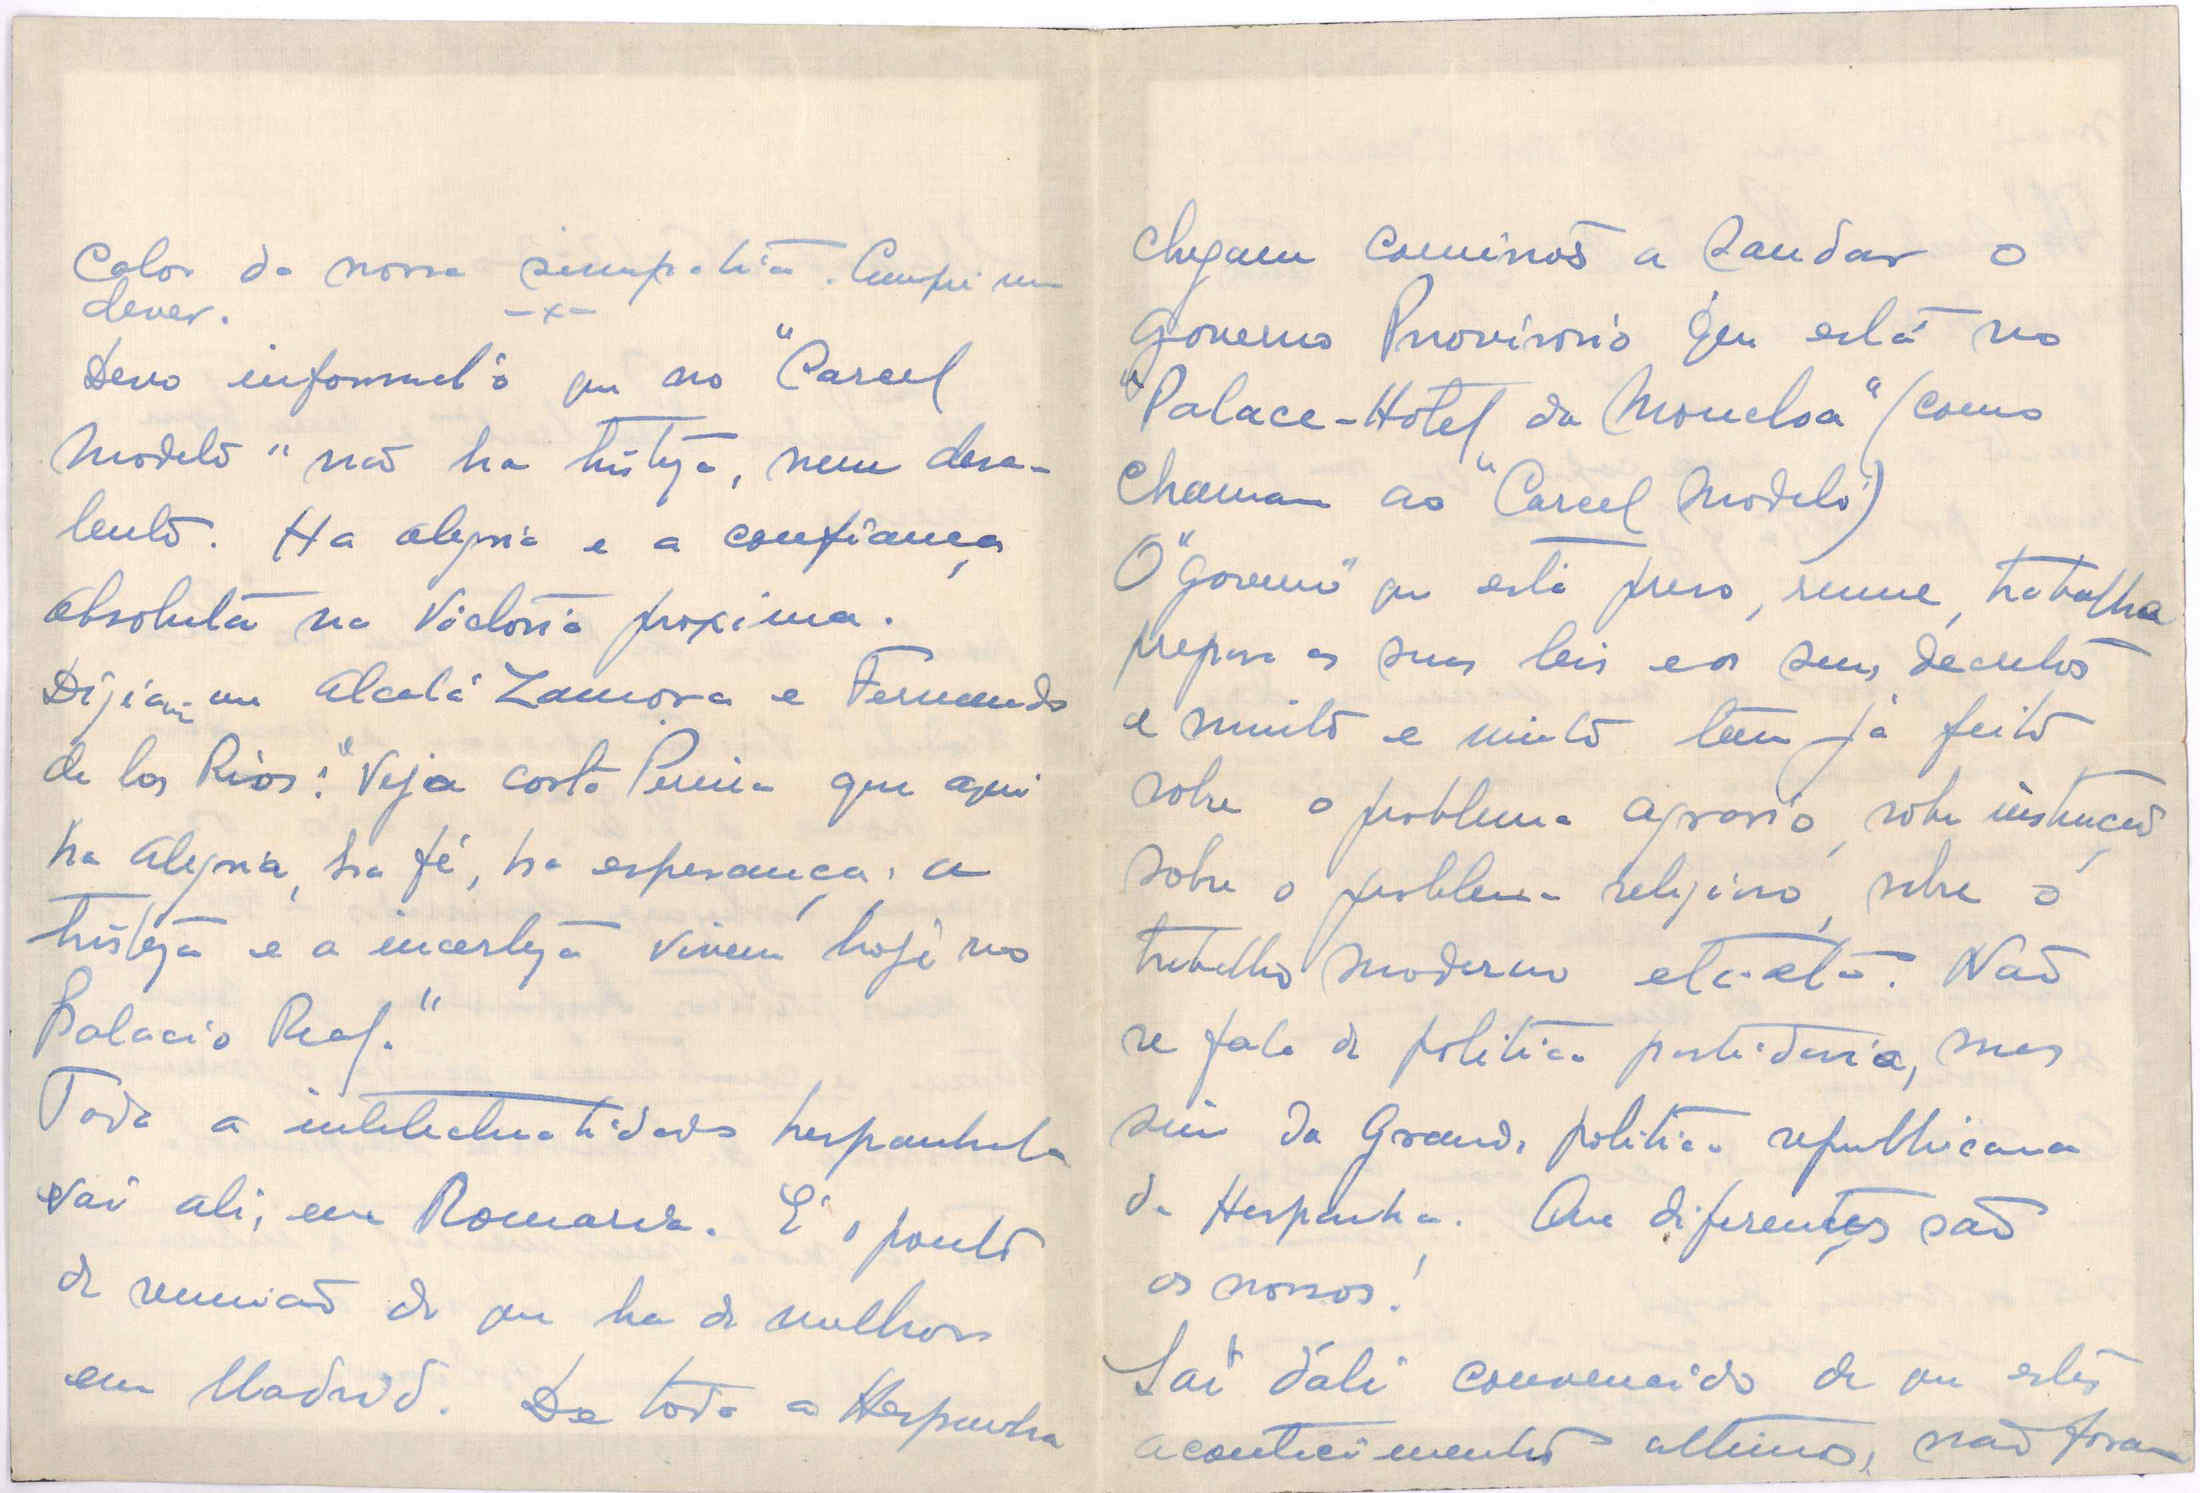 Calor da nossa simpatia. Cumpri um
dever.
-x-
Devo informal-o que no "Carcel
Modelo" não ha tristeza, nem desa-
lento. Ha alegria e a confiança
absoluta na Victoria proxima.
Diziam-me Alcalá Zamora e Fernando
de los Rios: "Veja Costa Pereira que aqui
ha alegria, ha fé, ha esperança; a
tristeza e a incerteza vivem hoje no
Palacio Real."
Toda a intelectualidade hespanhola
vai ali, em Romaria. É o ponto
de reunião do que ha de melhor
em Madrid. De toda a Hespanha
chegam a saudar o
Governo Provisorio que está no
"Palace-Hotel da Moncloa" (como
chamam ao "Carcel Modelo")
O "Governo" que está preso, reune, trabalha
prepara as suas leis e os seus decretos
e muito e muito tem já feito
sobre o problema agrario, sobre instrução
sobre o problema religioso, sobre o
trabalho moderno etc. etc. Não
se fala de politica partidaria, mas
sim da Grande politica republicana
da Hespanha. Que diferentes são
os nossos!
Saí dáli convencido de que estes
acontecimentos ultimos, não foram